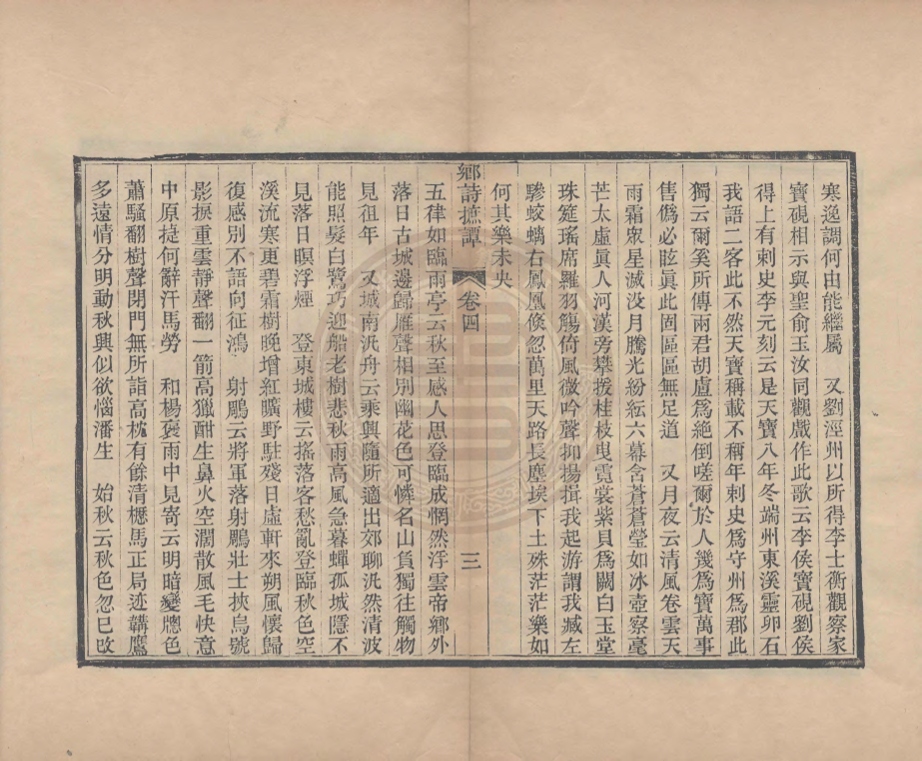 寒逸調何由能繼屬　又劉涇州以所得李士衡觀察家
寶硯相示與聖俞玉汝同觀戲作此歌云李侯寶硯劉侯
得上有刺史李元刻云是天寶八年冬端州東溪靈卵石
我語二客此不然天寶稱載不稱年刺史爲守州爲郡此
獨云爾奚所傳兩君胡盧爲絕倒嗟爾於人幾爲寶萬事
售僞必眩眞此固區區無足道　又月夜云清風卷雲天
雨霜衆星滅没月騰光紛紜六幕含蒼蒼瑩如冰壺察毫
芒太虛眞人河漢旁搴援桂枝曳霓裳紫貝爲闕白玉堂
珠筵瑤席羅羽觴倚風微吟聲抑揚揖我起游謂我臧左
驂蛟螭右鳳凰倏忽萬里天路長塵埃下土殊茫茫樂如
何其樂未央
鄉詩摭譚　卷四　三
五律如臨雨亭云秋至感人思登臨成惘然浮雲帝鄉外
落日古城邊歸雁聲相別幽花色可憐名山負獨往觸物
見祖年　又城南汎舟云乘興隨所適出郊聊汎然清波
能照髮白鷺巧迎船老樹悲秋雨高風急暮蟬孤城隱不
見落日暝浮煙　登東城樓云搖落客愁亂登臨秋色空
溪流寒更碧霜樹晚增紅曠野駐殘日虛軒來朔風懷歸
復感別不語向征鴻　射鵰云將軍落射鵰壯士挾烏號
影捩重雲靜聲翻一箭高獵酣生鼻火空濶散風毛快意
中原捷何辭汗馬勞　和楊褒雨中見寄云明暗變牕色
蕭騷翻樹聲閉門無所詣高枕有餘清櫪馬正局迹韝鷹
多遠情分明動秋興似欲惱潘生　始秋云秋色忽已改